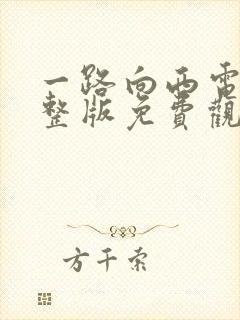 一路向西電
整版免費觀
方千索